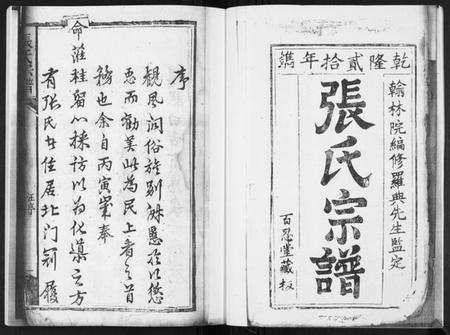 乾隆貳拾年鐫
翰林院編修羅典先生監定
張氏宗譜
百忍堂藏板
序
觀風問俗旌別淑慝所以懲
惡而勸美此為民上者之首
務也余自丙寅棠奉
命蒞桂留心採訪以為化導之方
有張氏世住居北門前履
張氏宗譜